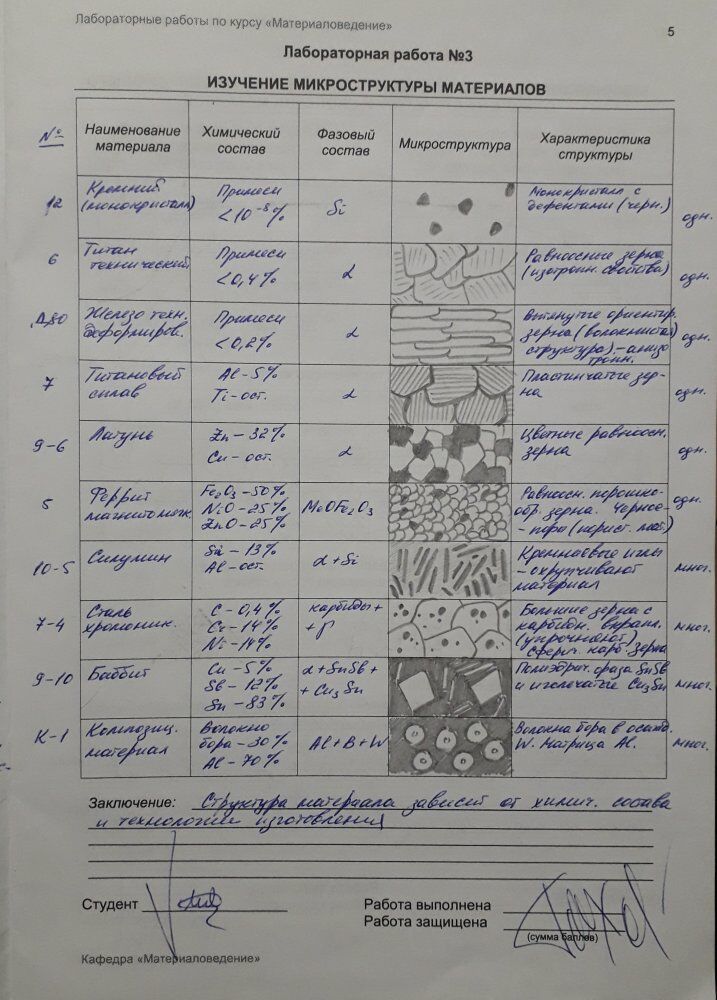 Лабораторные работы по курсу «Материаловедение»
5
Лабораторная работа №3
ИЗУЧЕНИЕ МИКРОСТРУКТУРЫ МАТЕРИАЛОВ
№ Наименование материала Химический состав Фазовый состав Микроструктура Характеристика структуры
12 Кремний (монокристалл) Примеси <10⁻⁸% Si Монокристалл с дефектами (черн.) одн.
6 Титан технический Примеси <0,4% α Равноосные зерна (изотропн. свойства) одн.
Д80 Железо техн. деформиров. Примеси <0,2% α Вытянутые ориентир. зерна (волокнистая структура) – анизотропн. одн.
7 Титановый сплав Al – 5% Ti – ост. α Пластинчатые зерна одн.
9-6 Латунь Zn – 32% Cu – ост. α Цветные равноосн. зерна одн.
5 Феррит магнитомягк. Fe₂O₃ – 50% NiO – 25% ZnO – 25% MeOFe₂O₃ Равноосн. порошкообр. зерна. Черное – поры (порист. мат.) одн.
10-5 Силумин Si – 13% Al – ост. α + Si Кремниевые иглы – охрупчивают материал мног.
7-4 Сталь хромоник. C – 0,4% Cr – 14% Ni – 14% карбиды + + γ Большие зерна с карбидн. вкрапл. (упрочняют) Сферич. карб. зерна мног.
9-10 Баббит Cu – 5% Sb – 12% Sn – 83% α + SnSb + + Cu₃Sn Полиэдрич. фаза SnSb и игольчатые Cu₃Sn мног.
К-1 Композиц. материал Волокно бора – 30% Al – 70% Al + B + W Волокна бора в W. Матрица Al. мног.
Заключение: Структура материала зависит от химич. состава
и технологии изготовления
Студент
Работа выполнена
Работа защищена
(сумма баллов)
Кафедра «Материаловедение»